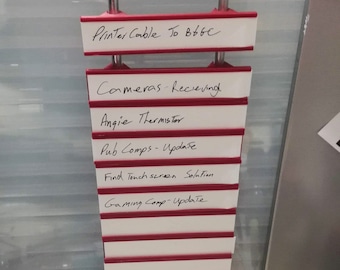 Printer Cable To BGGC
Cameras - Recieving
Angie Thermistor
Pub Comps - Update
Find Touchscreen Solution
Gaming Comp - Update